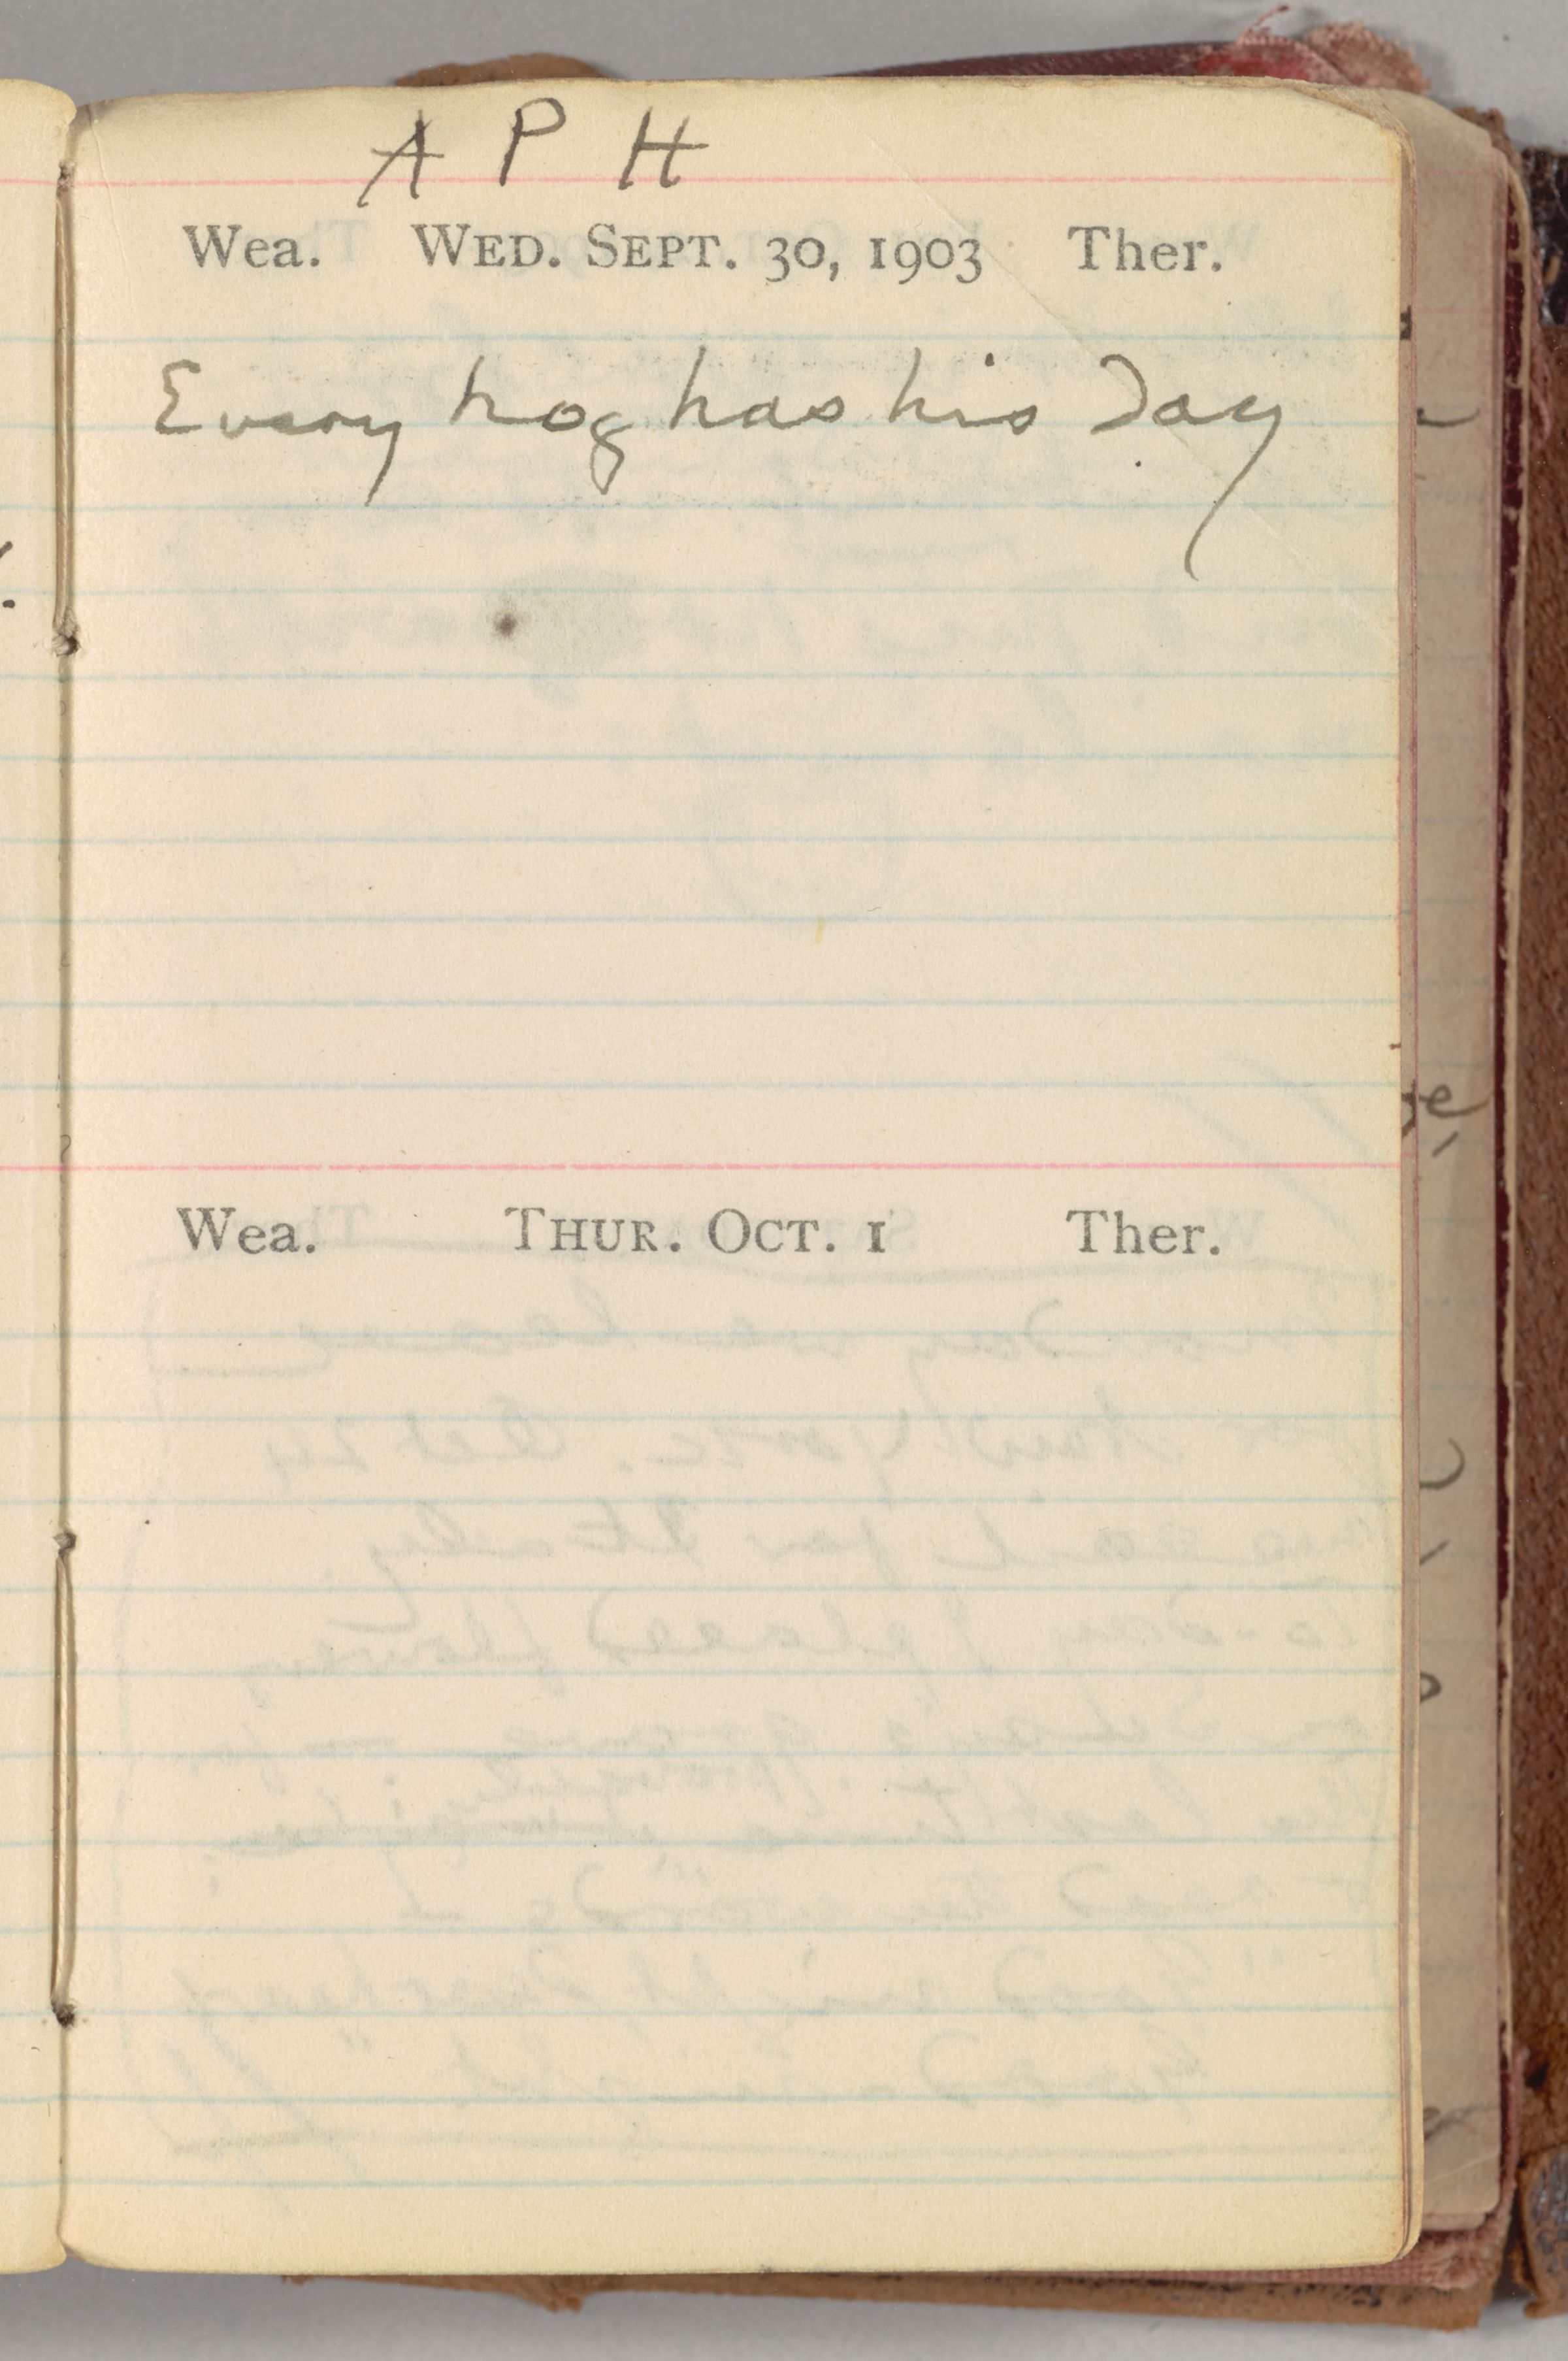 A P H
Wea. WED. SEPT. 30, 1903 Ther.
Every hog has his day
Wea. THUR. OCT. 1 Ther.